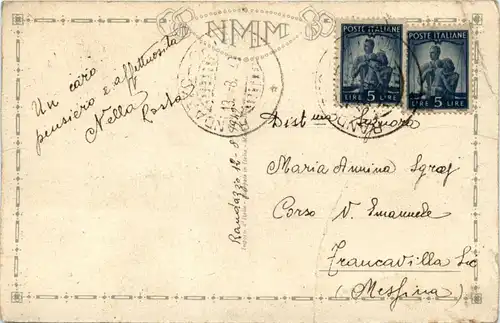 NMM
Un caro
pensiero e affettuosità
Nella
Randazzo 12-8-
POSTE ITALIANE
LIRE 5 LIRE
POSTE ITALIANE
LIRE 5 LIRE
Dist ma Signora
Maria Annina Sgroj
Corso V. Emanuele
Francavilla Sic
(Messina)